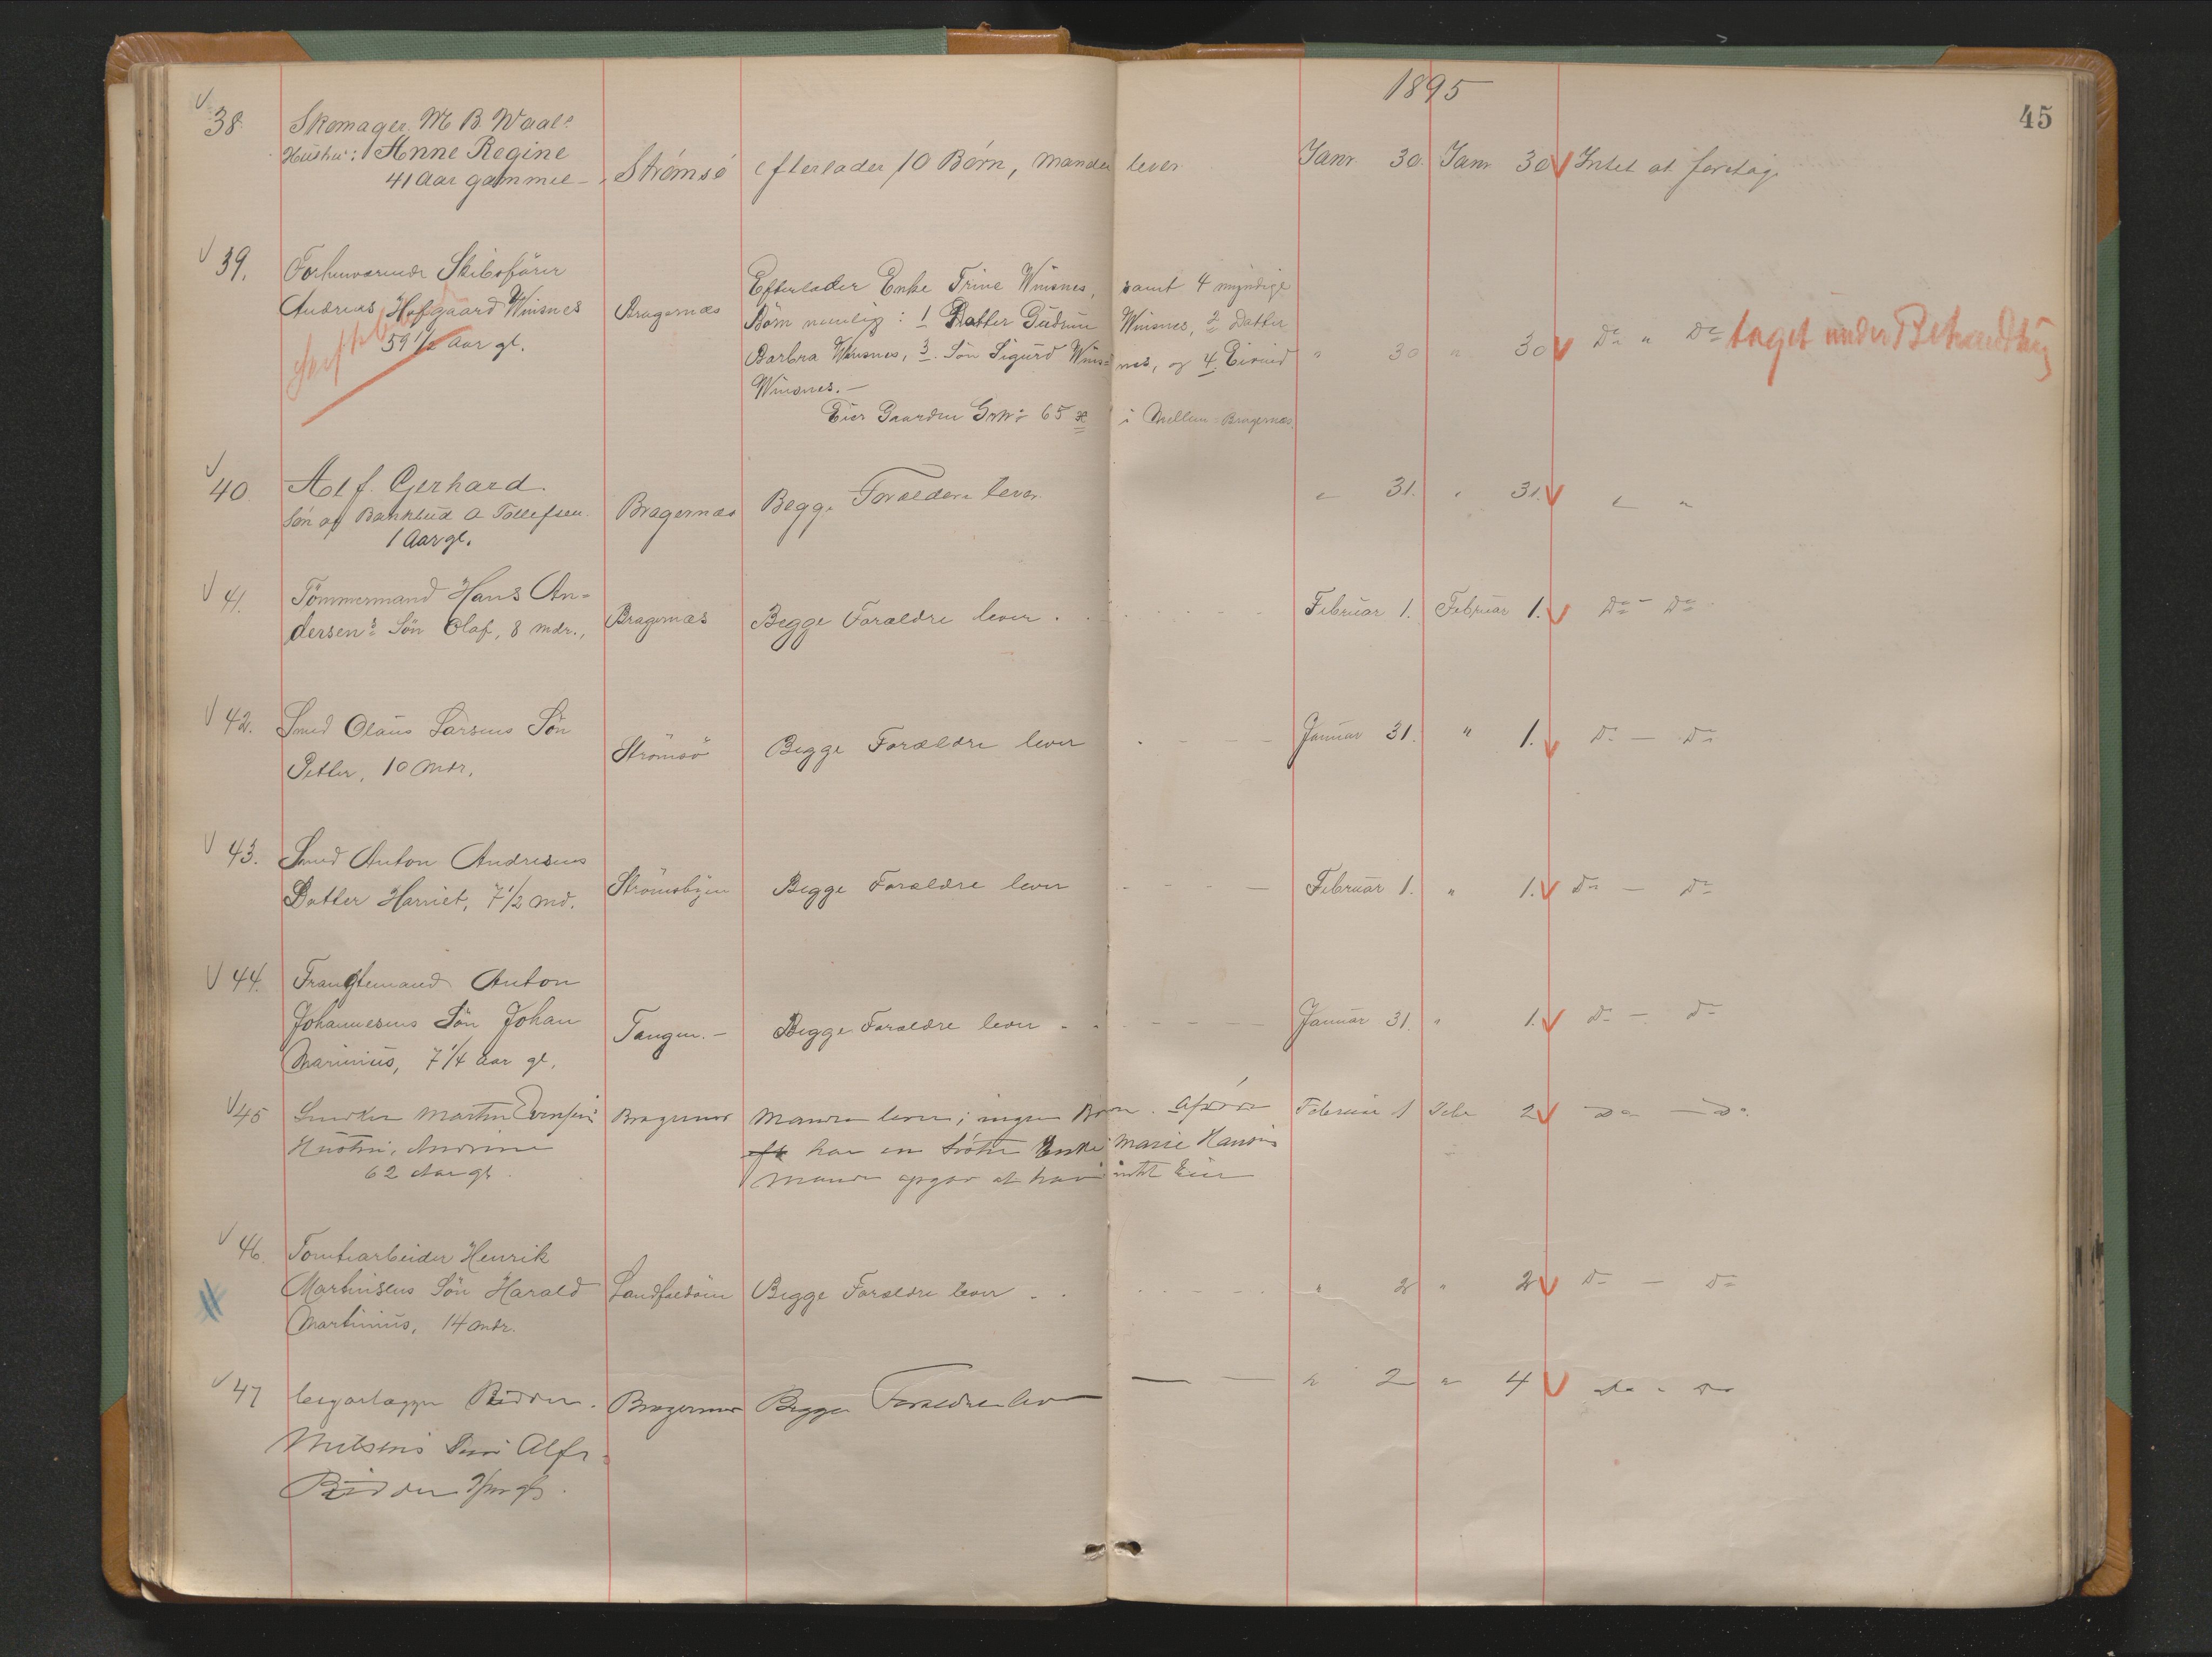 1895
45
38. Skomager M B Waals
Hustru: Anne Regine
41 Aar gammel - Strömsö efterlader 10 Børn, Manden lever Janr. 30. Janr 30 Intet at foretage
39. Forhenværende Skibsfører
Andreas Hofgaard Winsnes Bragernæs
59 1/2 Aar gl.
Efterlader Enke Trine Winsnes, samt 4 myndige
Börn nemlig: 1 Datter Gudrun Winsnes, 2 Datter
Barbra Winsnes, 3. Sön Sigurd Winsnes, og 4. Eivind " 30 " 30 Do " Do taget under Behandling
Winsnes. -
Eier Gaarden Grno 65 i Mellem-Bragernæs.
40. Alf Gerhard
Sön af Bankbud A Tollefsen. Bragernæs Begge Forældere lever. " 31. " 31. " "
1 Aar gl.
41. Tömmermand Hans An-
dersens Sön Olaf, 8 mdr., Bragernæs Begge Forældre lever. Februar 1. Februar 1. Do - Do
42. Smed Olaus Larsens Sön
Petter, 10 Mdr. Strömsö Begge Forældre lever Januar 31. " 1. Do - Do
43. Smed Anton Andresens
Datter Harriet, 7 1/2 Md. Strömsbyen Begge Forældre lever Februar 1. " 1. Do - Do
44. Anton
Johannesens Sön Johan
Marinius, 7 1/4 Aar gl. Tangen. - Begge Forældre lever Januar 31. " 1. Do - Do
45 Snedker Martin
Hustru, Andrine
62 Aar gl. Bragernæs Manden lever; ingen Børn. Afdøde Februar 1 Febr 2 Do - Do
har en Søster Enke Marie Hansen
Manden opgav at have intet Eie
46. Tomtearbeider Henrik
Martinsens Sön Harald Landfaldöien Begge Forældre lever " 2 " 2 Do - Do
Martinius, 14 Mdr.
47 Bragernæs Begge Forældre lever " 2 " 4 Do " Do
Nilsens Søn Alf